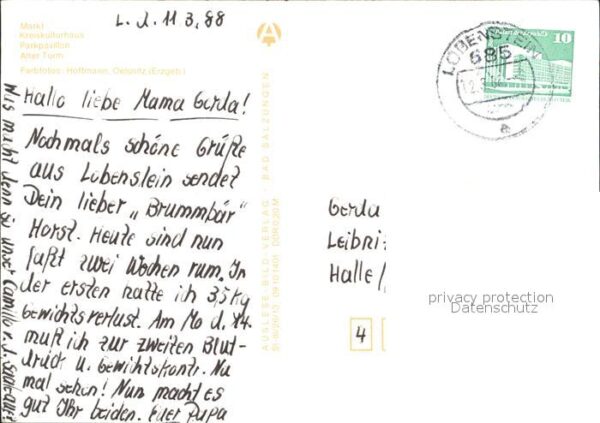 L. d. 11.3.88
Markt
Kreiskulturhaus
Parkpavillon
Alter Turm
Farbfotos: Hoffmann, Oelsnitz (Erzgeb.)
Hallo liebe Mama Gerda!
Nochmals schöne Grüße
aus Lobenstein sendet
Dein lieber „Brummbär"
Horst. Heute sind nun
faßt zwei Wochen rum. In
der ersten hatte ich 3,5 kg
Gewichtsverlust. Am Mo d. 14.
muß ich zur zweiten Blut-
druck u. Gewichtskontr. Na
mal sehen! Nun macht es
gut Ihr beiden. Euer Papa
Was macht denn so unser Camillo
AUSLESE-BILD-VERLAG · BAD SALZUNGEN
DDR 0,20 M
LOBENSTEIN
685
a
10
Gerda
Leibni
Halle/
4
privacy protection
Datenschutz